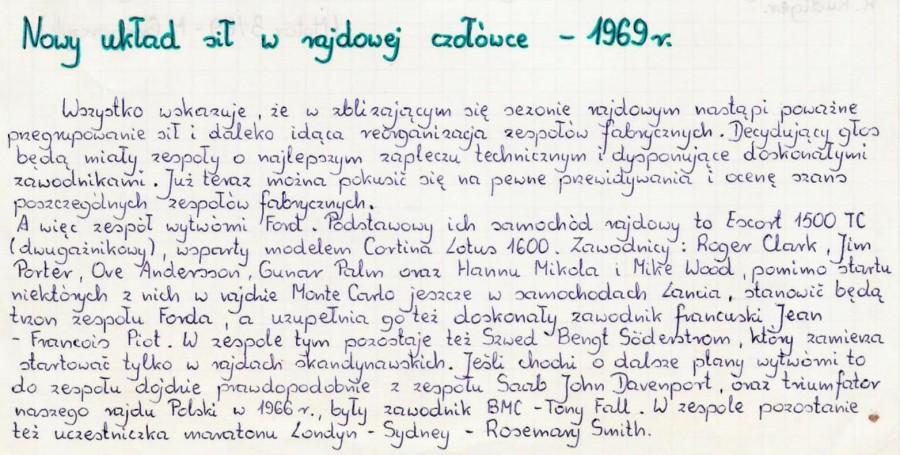 Nowy układ sił w rajdowej czołówce - 1969 r.
Wszystko wskazuje, że w zbliżającym się sezonie rajdowym nastąpi poważne
przegrupowanie sił i daleko idąca reorganizacja zespołów fabrycznych. Decydujący głos
będą miały zespoły o najlepszym zapleczu technicznym i dysponujące doskonałymi
zawodnikami. Już teraz można pokusić się na pewne przewidywania i ocenę szans
poszczególnych zespołów fabrycznych.
A więc zespół wytwórni Ford. Podstawowy ich samochód rajdowy to Escort 1500 TC
(dwugaźnikowy), wsparty modelem Cortina Lotus 1600. Zawodnicy: Roger Clark, Jim
Porter, Ove Andersson, Gunar Palm oraz Hannu Mikola i Mike Wood, pomimo startu
niektórych z nich w rajdzie Monte Carlo jeszcze w samochodach Lancia, stanowić będą
trzon zespołu Forda, a uzupełnia go też doskonały zawodnik francuski Jean
- Francois Piot. W zespole tym pozostaje też Szwed Bengt Söderstrom, który zamierza
startować tylko w rajdach skandynawskich. Jeśli chodzi o dalsze plany wytwórni to
do zespołu dojdzie prawdopodobnie z zespołu Saab John Davenport, oraz triumfator
naszego rajdu Polski w 1966 r., były zawodnik BMC - Tony Fall. W zespole pozostanie
też uczestniczka maratonu Londyn - Sydney - Rosemary Smith.